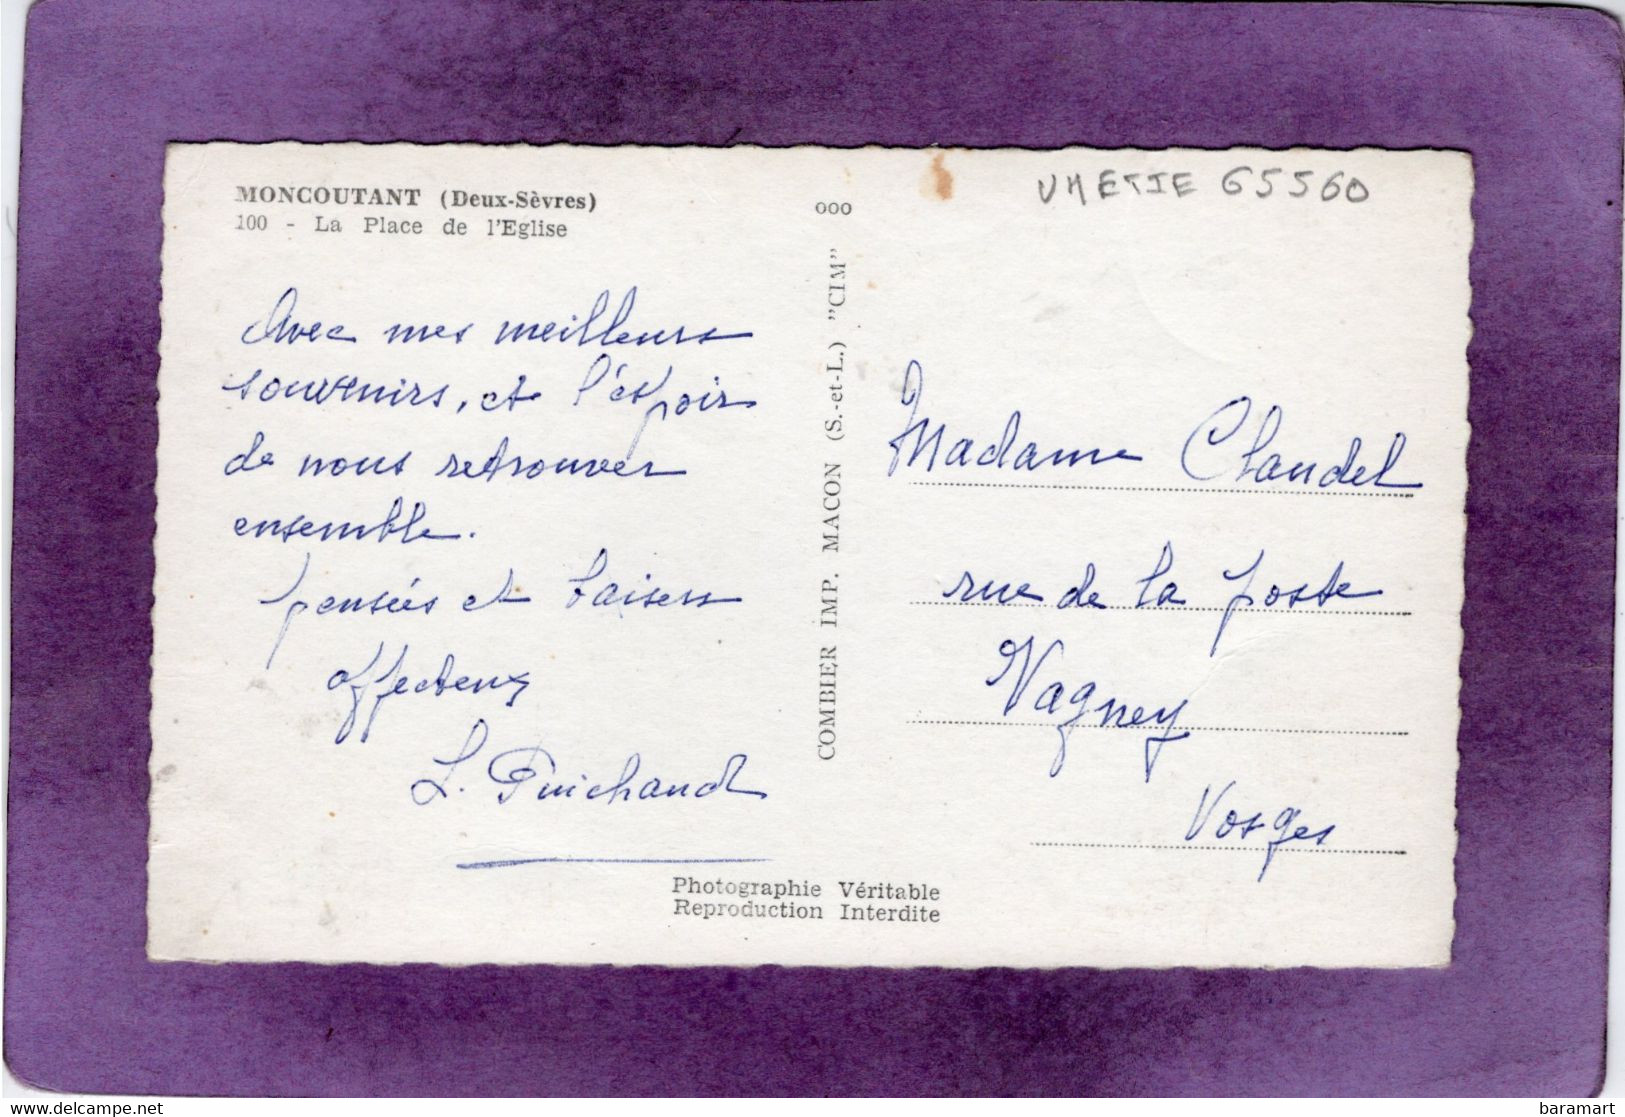 MONCOUTANT (Deux-Sèvres)
100 - La Place de l'Eglise
Avec mes meilleurs
souvenirs, et l'espoir
de nous retrouver
ensemble.
pensées et baisers
affectueux
L. Guichaud
ooo
COMBIER IMP. MACON (S.-et-L.) "CIM"
65560
Madame Claudel
rue de la poste
Vagney
Vosges
Photographie Véritable
Reproduction Interdite
www.delcampe.net
baramart